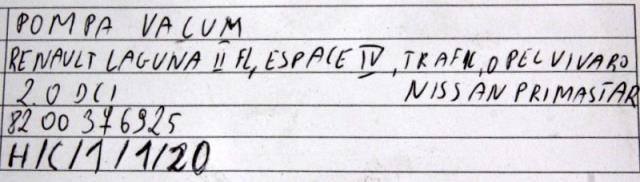 POMPA VACUM
RENAULT LAGUNA II FL, ESPACE IV, TRAFIC, OPEL VIVARO
2.0 DCI NISSAN PRIMASTAR
8200376925
H/C/1/1/20